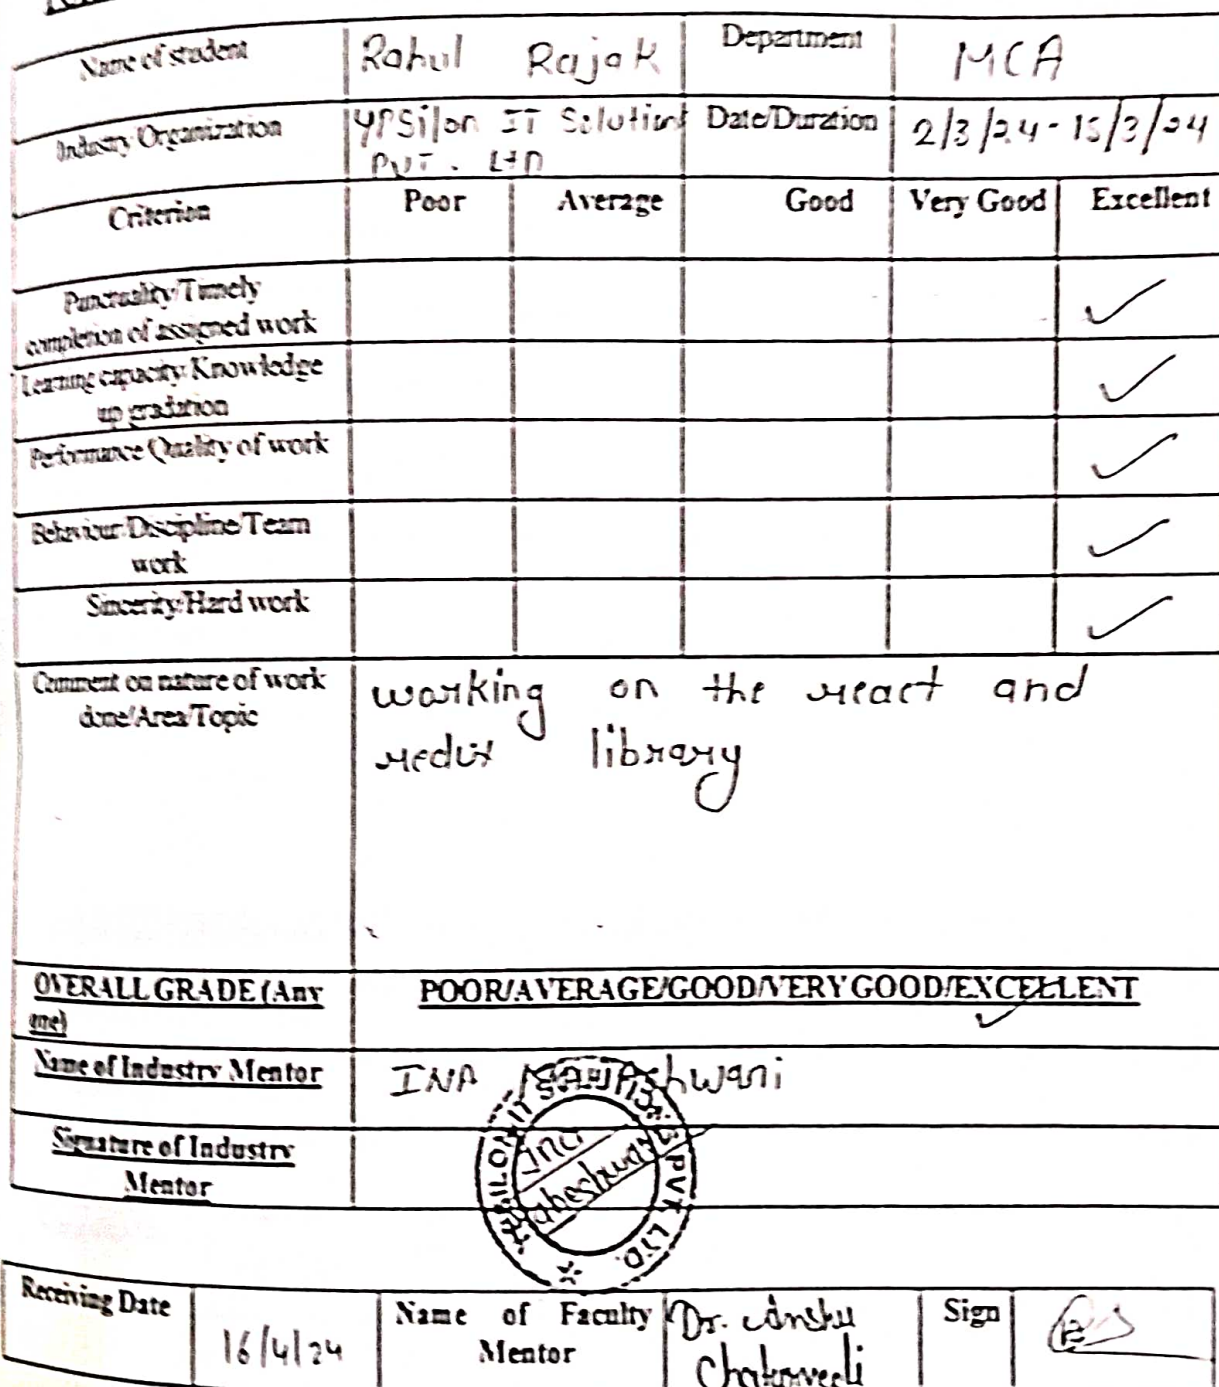 Name of student Rahul Rajak Department MCA
Industry/Organization YPSilon IT Solution Date/Duration 2/3/24 - 15/3/24
PVT. LTD
Criterion Poor Average Good Very Good Excellent
Punctuality/Timely ✓
completion of assigned work
Learning capacity/Knowledge ✓
up gradation
Performance/Quality of work ✓
Behaviour/Discipline/Team ✓
work
Sincerity/Hard work ✓
Comment on nature of work working on the react and
done/Area/Topic redux library
OVERALL GRADE (Any POOR/AVERAGE/GOOD/VERY GOOD/EXCELLENT
one) ✓
Name of Industry Mentor INA Maheshwani
Signature of Industry
Mentor
PVT. LTD.
Receiving Date Name of Faculty Dr. Anshu Sign
16/4/24 Mentor